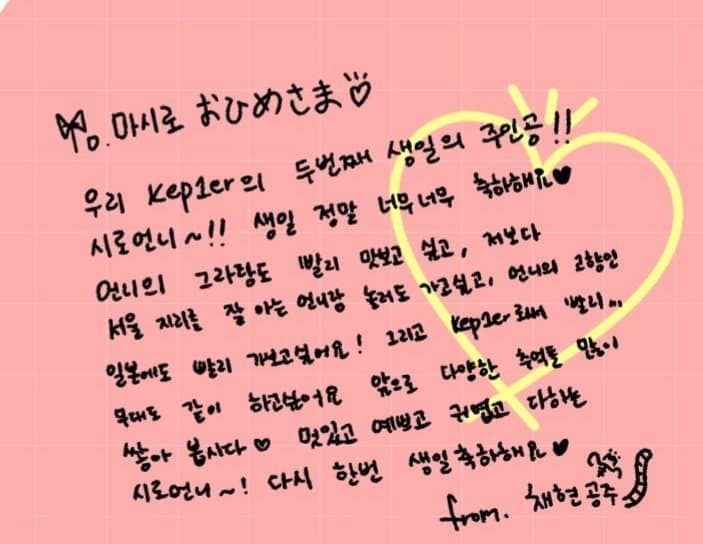 To. 마시로 おひめさま♡
우리 Kep1er의 두번째 생일의 주인공!!
시로언니~!! 생일 정말 너무너무 축하해요♥
언니의 그라탕도 빨리 맛보고 싶고, 저보다
서울 지리를 잘 아는 언니랑 놀러도 가고싶고, 언니의 고향인
일본에도 빨리 가보고싶어요! 그리고 Kep1er로써 빨리...
무대도 같이 하고싶어요 앞으로 다양한 추억들 많이
쌓아 봅시다♡ 멋있고 예쁘고 귀엽고 다하는
시로언니~! 다시 한번 생일축하해요♥
from. 채현공주